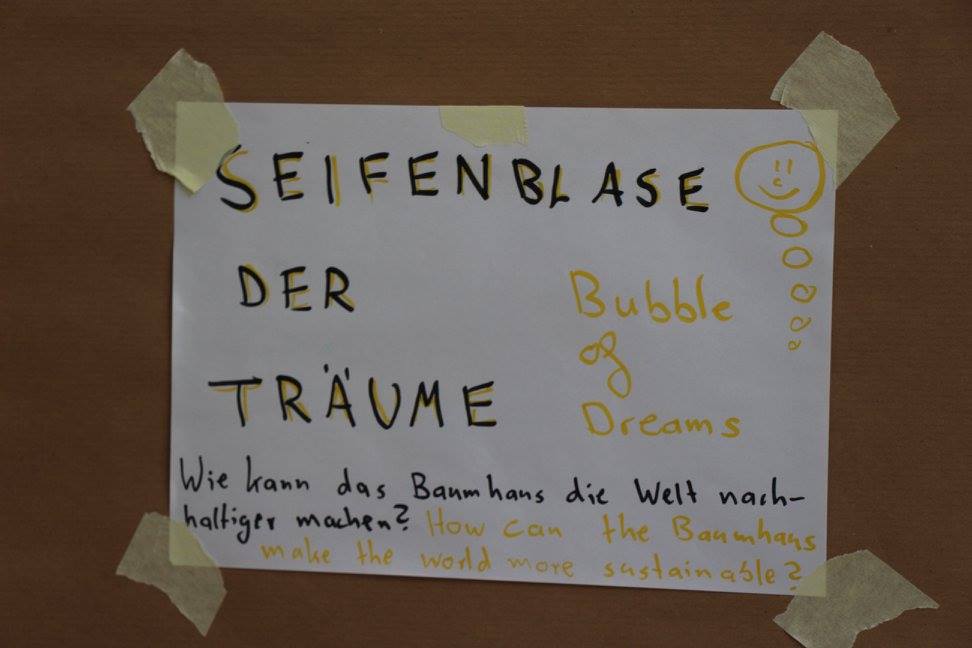 SEIFENBLASE
DER
TRÄUME
Bubble
of
Dreams
Wie kann das Baumhaus die Welt nach-
haltiger machen? How can the Baumhaus
make the world more sustainable?